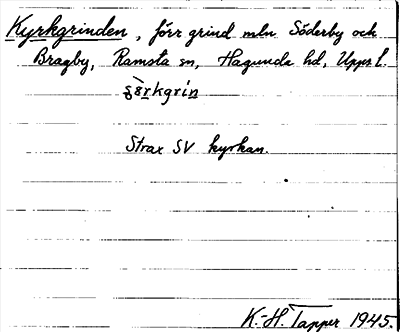 Kyrkgrinden, förr grind mln Söderby och
Bragby, Ramsta sn, Hagunda hd, Upps. l.
Strax SV kyrkan.
K.-H. Tapper 1945.